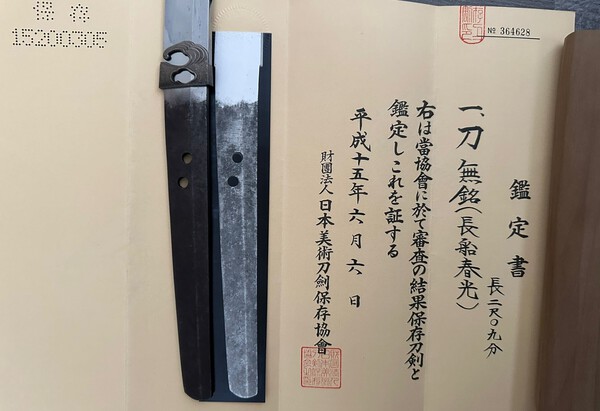 保存
15200305
№ 364628
鑑定書
長二尺〇九分
一、刀 無銘(長船春光)
右は當協會に於て審査の結果保存刀劍と
鑑定しこれを証する
平成十五年六月六日
財團法人日本美術刀劍保存協會